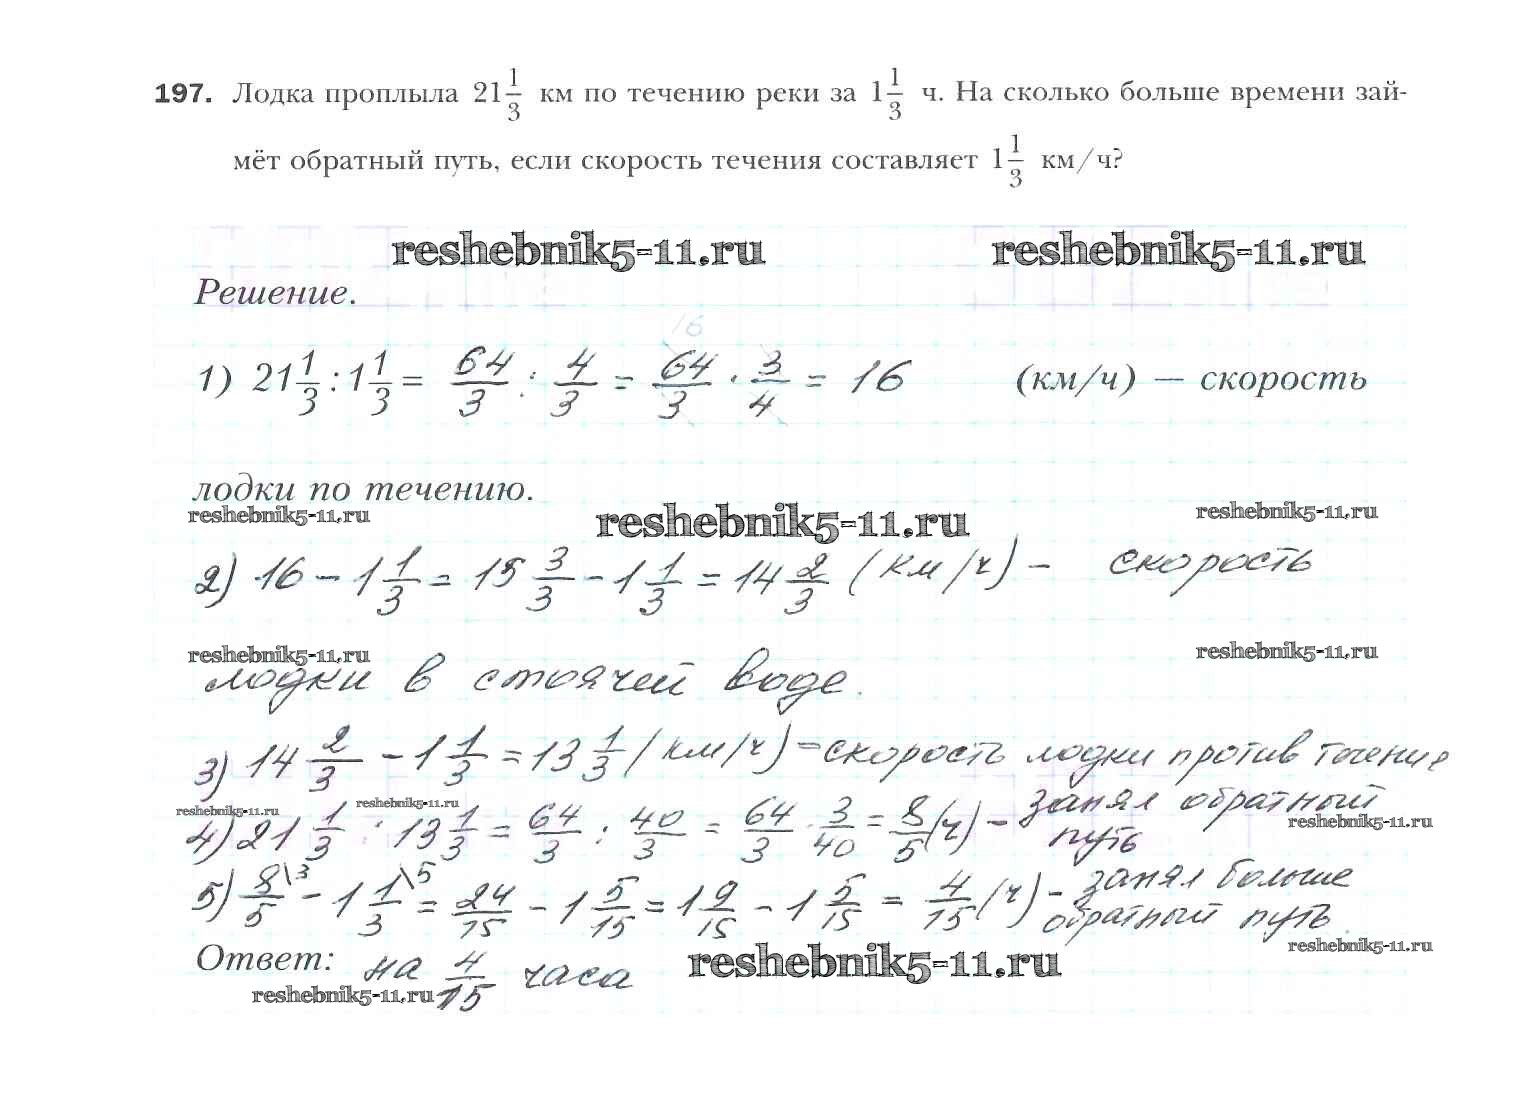 197. Лодка проплыла 21 1/3 км по течению реки за 1 1/3 ч. На сколько больше времени зай-
мёт обратный путь, если скорость течения составляет 1 1/3 км/ч?
reshebnik5-11.ru reshebnik5-11.ru
Решение.
16
1) 21 1/3 : 1 1/3 = 64/3 : 4/3 = 64/3 · 3/4 = 16 (км/ч) — скорость
лодки по течению.
reshebnik5-11.ru reshebnik5-11.ru reshebnik5-11.ru
2) 16 - 1 1/3 = 15 3/3 - 1 1/3 = 14 2/3 (км/ч) - скорость
reshebnik5-11.ru reshebnik5-11.ru
лодки в стоячей воде.
3) 14 2/3 - 1 1/3 = 13 1/3 (км/ч) - скорость лодки против течение
reshebnik5-11.ru reshebnik5-11.ru
4) 21 1/3 : 13 1/3 = 64/3 : 40/3 = 64/3 · 3/40 = 8/5 (ч) - занял обратный
путь
reshebnik5-11.ru
5) 8/5 \3 - 1 1/3 \5 = 24/15 - 1 5/15 = 1 9/15 - 1 5/15 = 4/15 (ч) - занял больше
обратный путь.
reshebnik5-11.ru
Ответ: на 4/15 часа
reshebnik5-11.ru
reshebnik5-11.ru